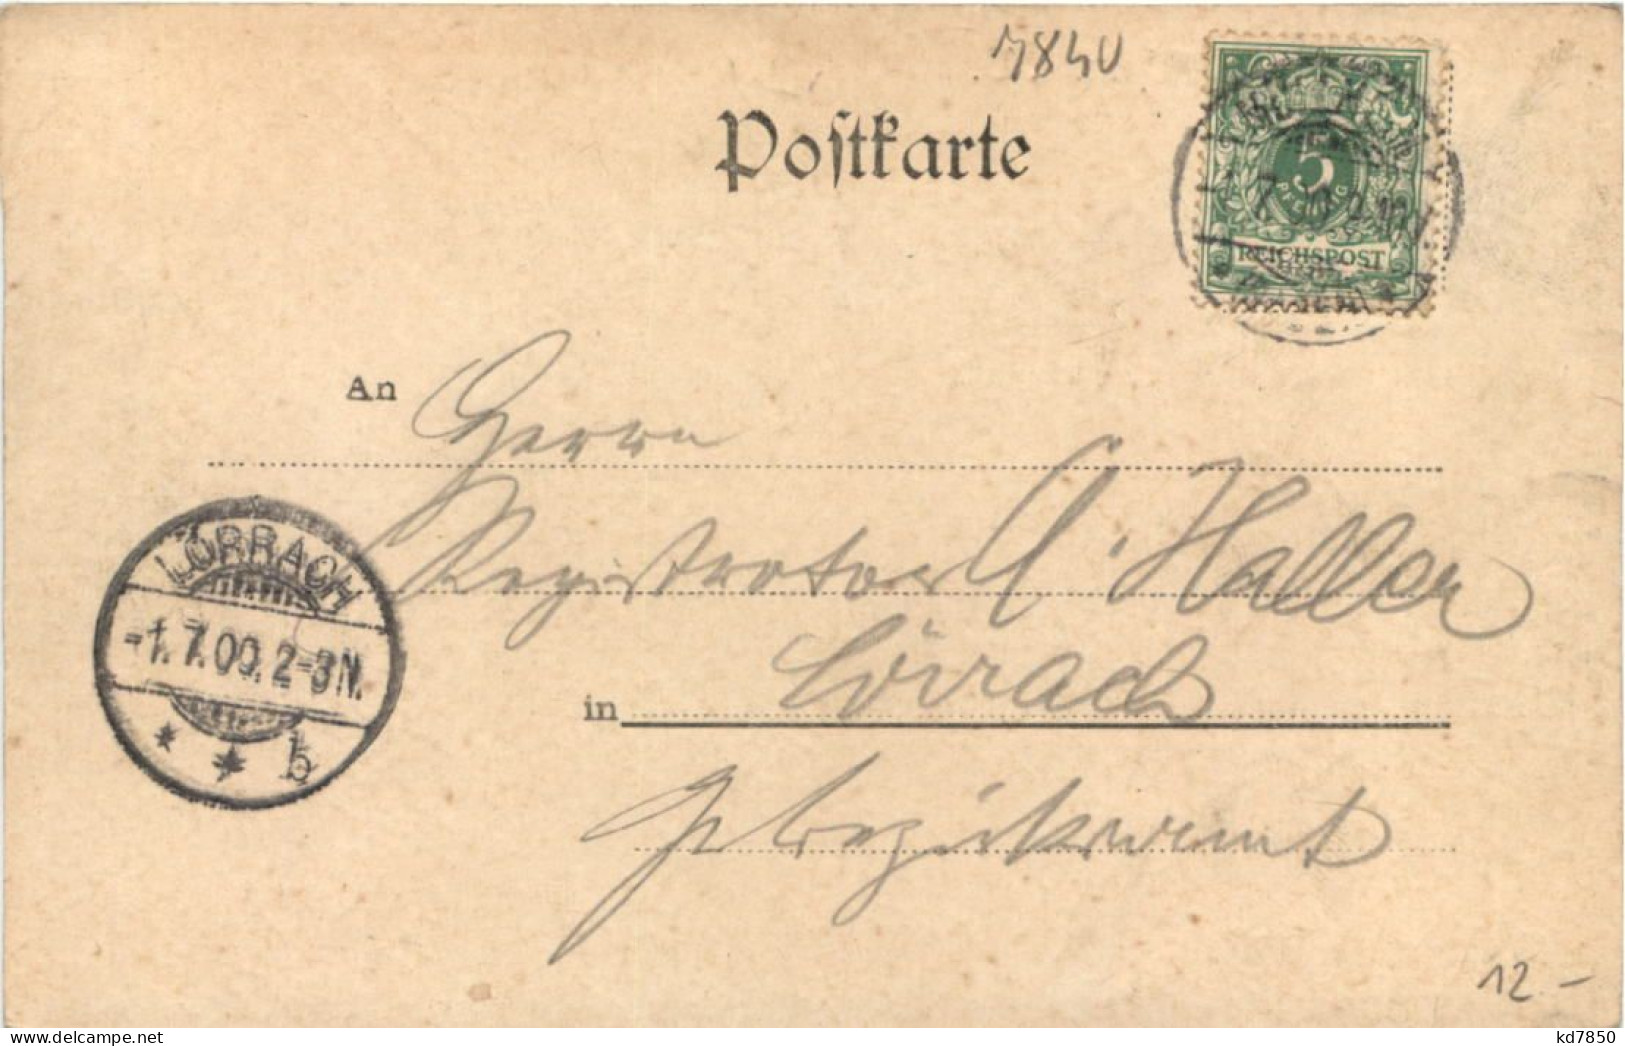 7840
Postkarte
5
PFENNIG
REICHSPOST
An Herrn
Registrator A. Haller
LÖRRACH
-1.7.00.2-3N.
* * b
in Lörrach
Gr. Bezirksamt
12.-
www.delcampe.net
kd7850